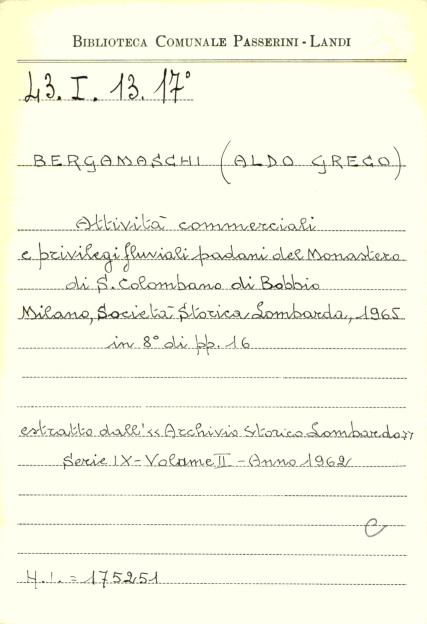 BIBLIOTECA COMUNALE PASSERINI - LANDI
L3. I. 13. 17°
BERGAMASCHI (ALDO GRECO)
Attività commerciali
e privilegi fluviali padani del Monastero
di S. Colombano di Bobbio
Milano, Società Storica Lombarda, 1965
in 8° di pp. 16
estratto dall'<< Archivio Storico Lombardo >>
Serie IX - Volume II - Anno 1962
C
H.I. = 175251